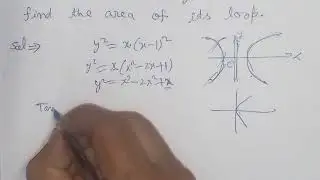 find the area of its loop.
Sol ⇒ y² = x(x-1)²
y² = x(x²-2x+1)
y² = x³-2x²+x
Tan